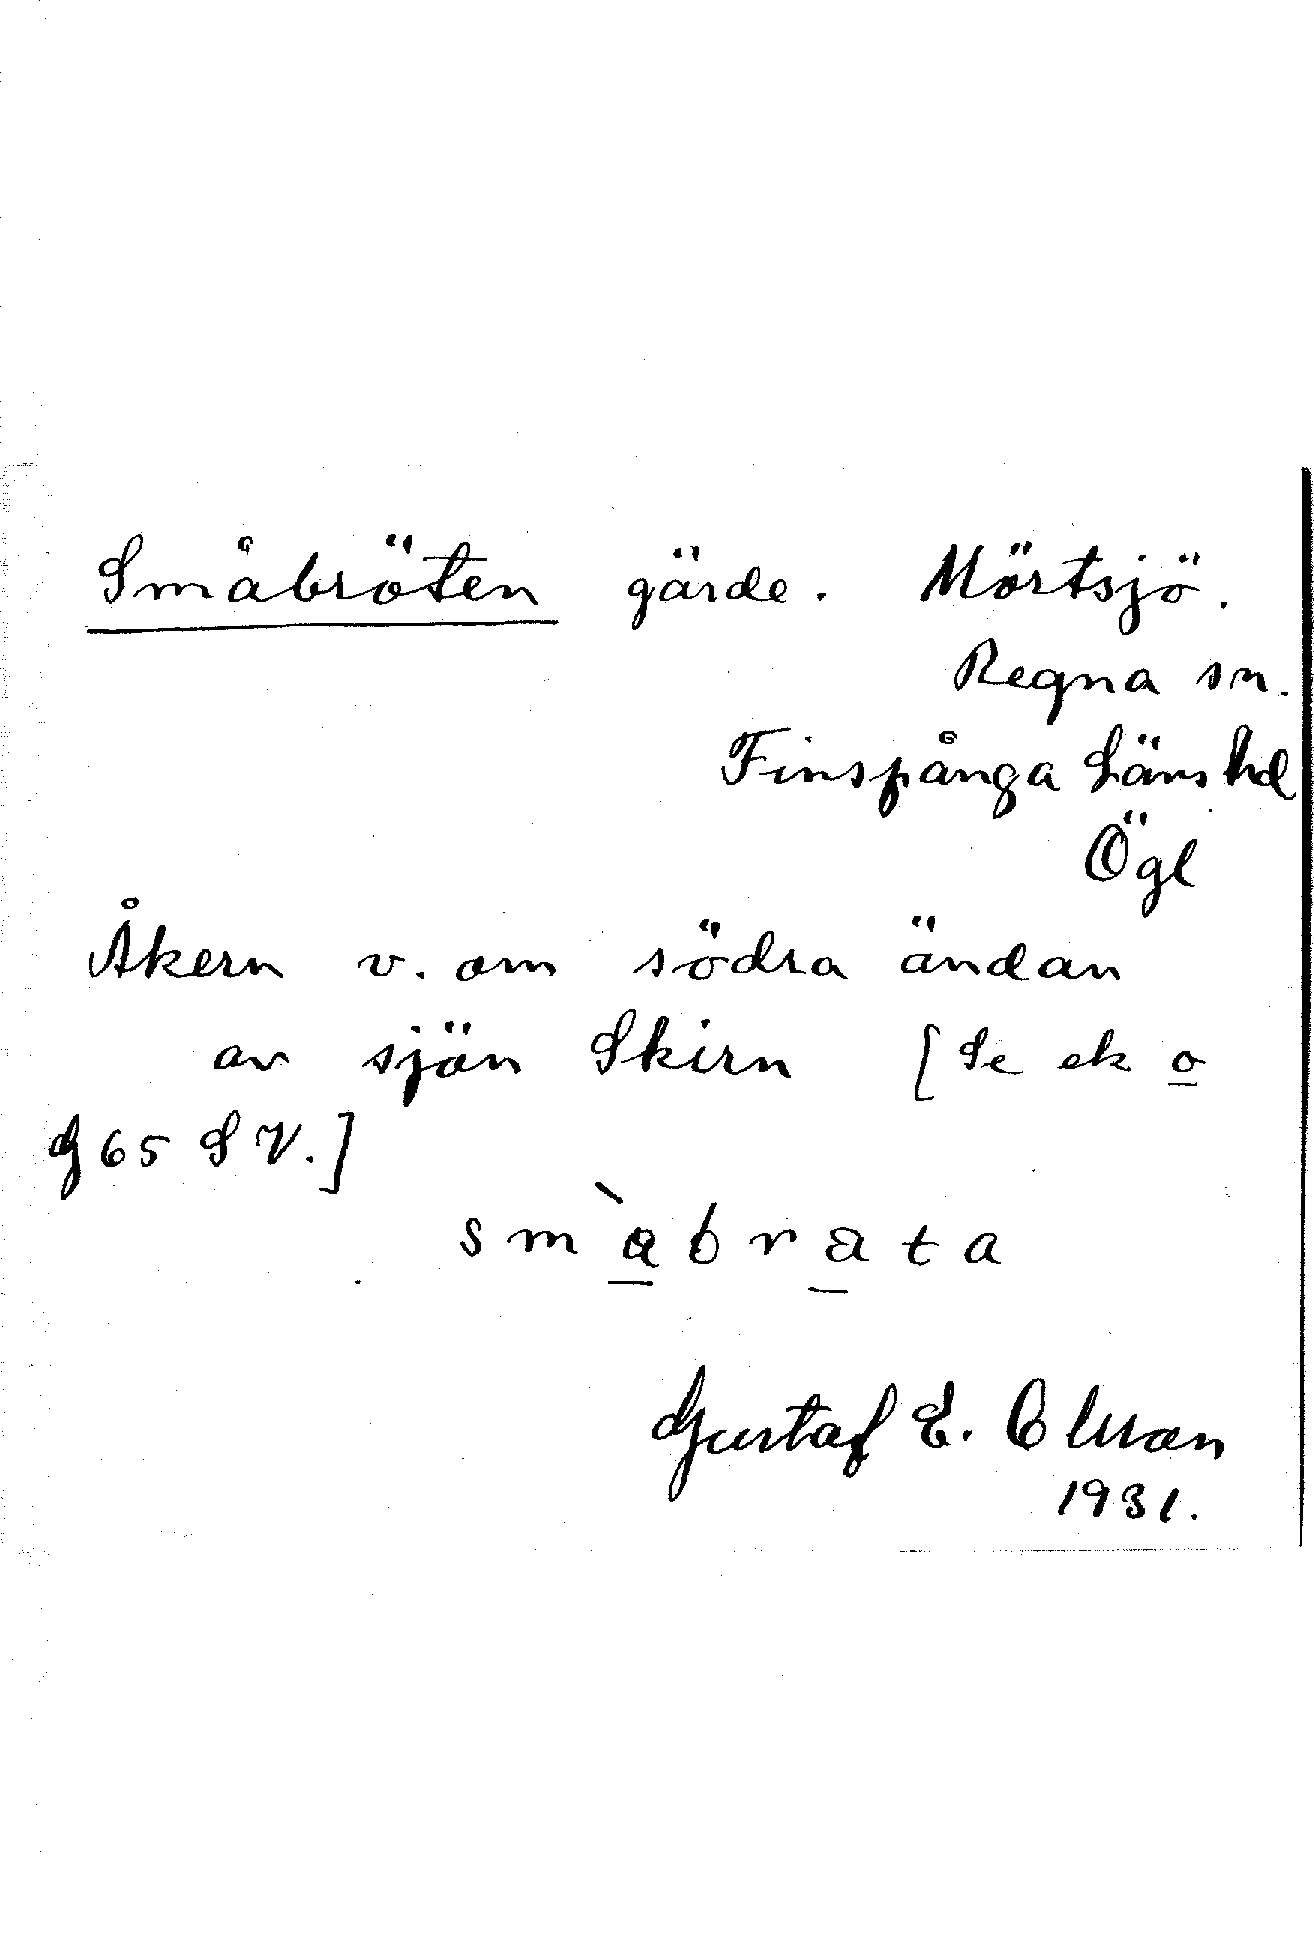 Småbröten gärde. Mörtsjö.
Regna sn.
Finspånga Läns hd
Ögl
Åkern v. om södra ändan
av sjön Skirn [Se ek o
G 65 S V.]
smàbrata
Gustaf E. Olsson
1931.